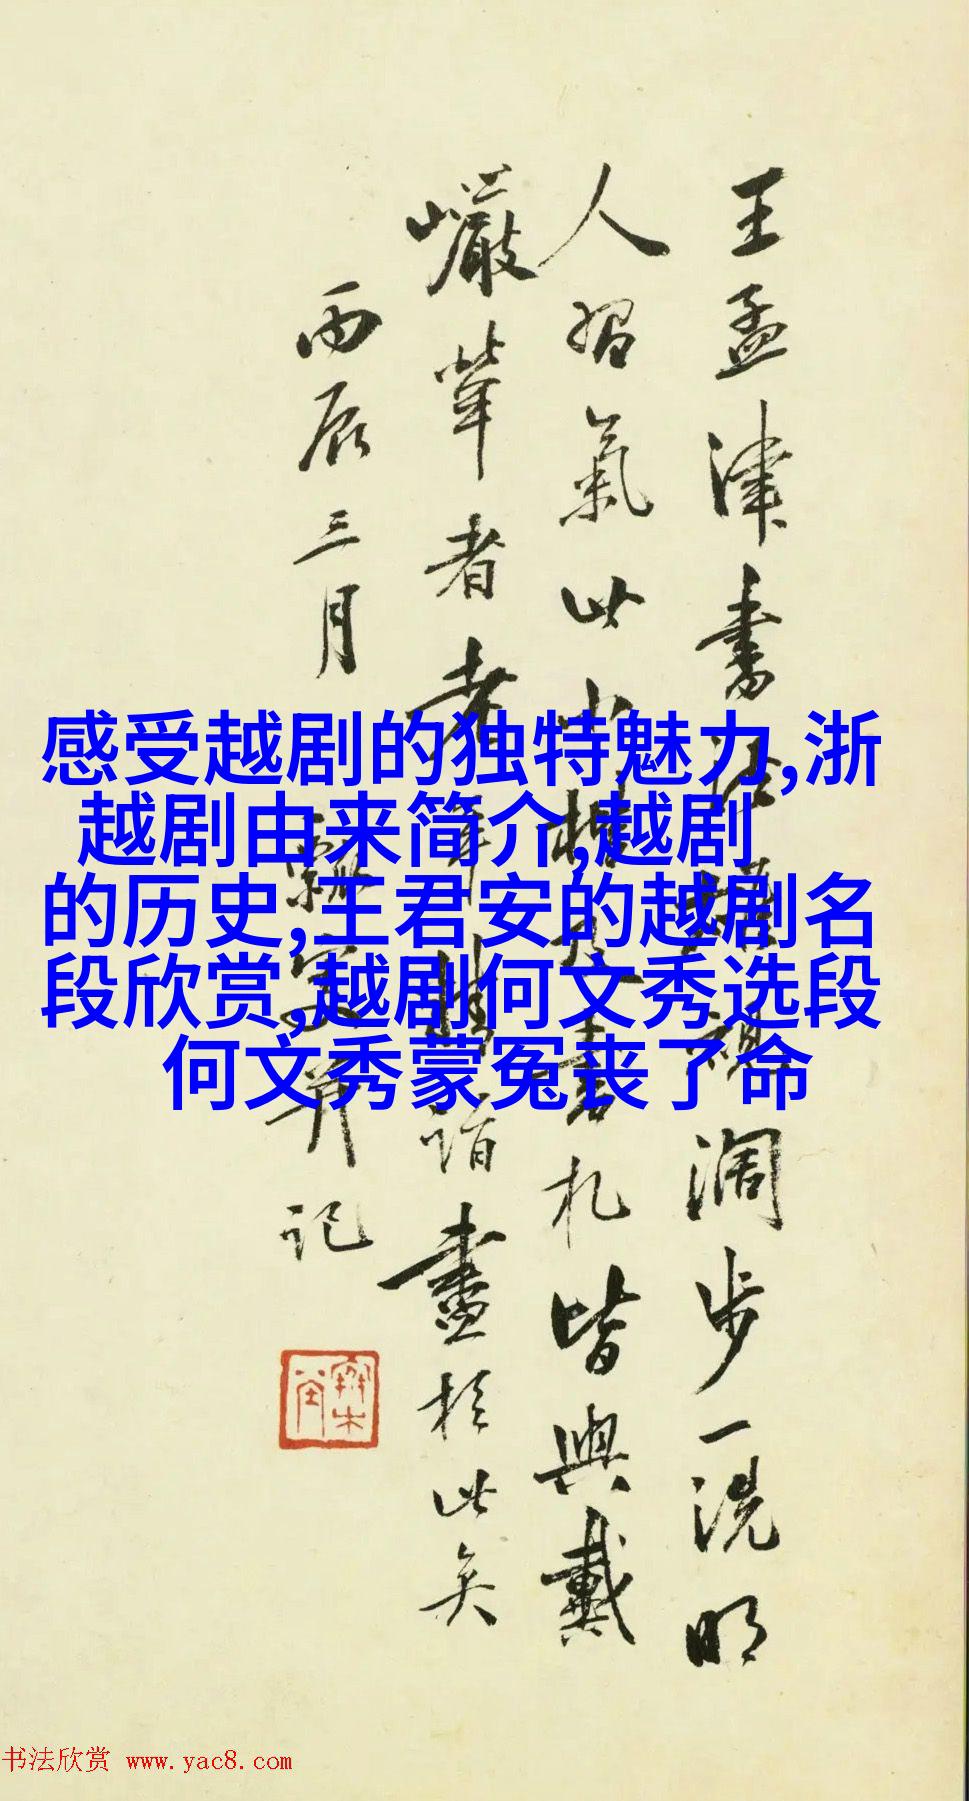 王孟津書法橫視闊步一洗明
人習氣此小楷及書札皆與戴
巖犖者老年精詣畫於此矣
丙辰三月 記
感受越剧的独特魅力,浙
越剧由来简介,越剧
的历史,王君安的越剧名
段欣赏,越剧何文秀选段
何文秀蒙冤丧了命
书法欣赏 www.yac8.com